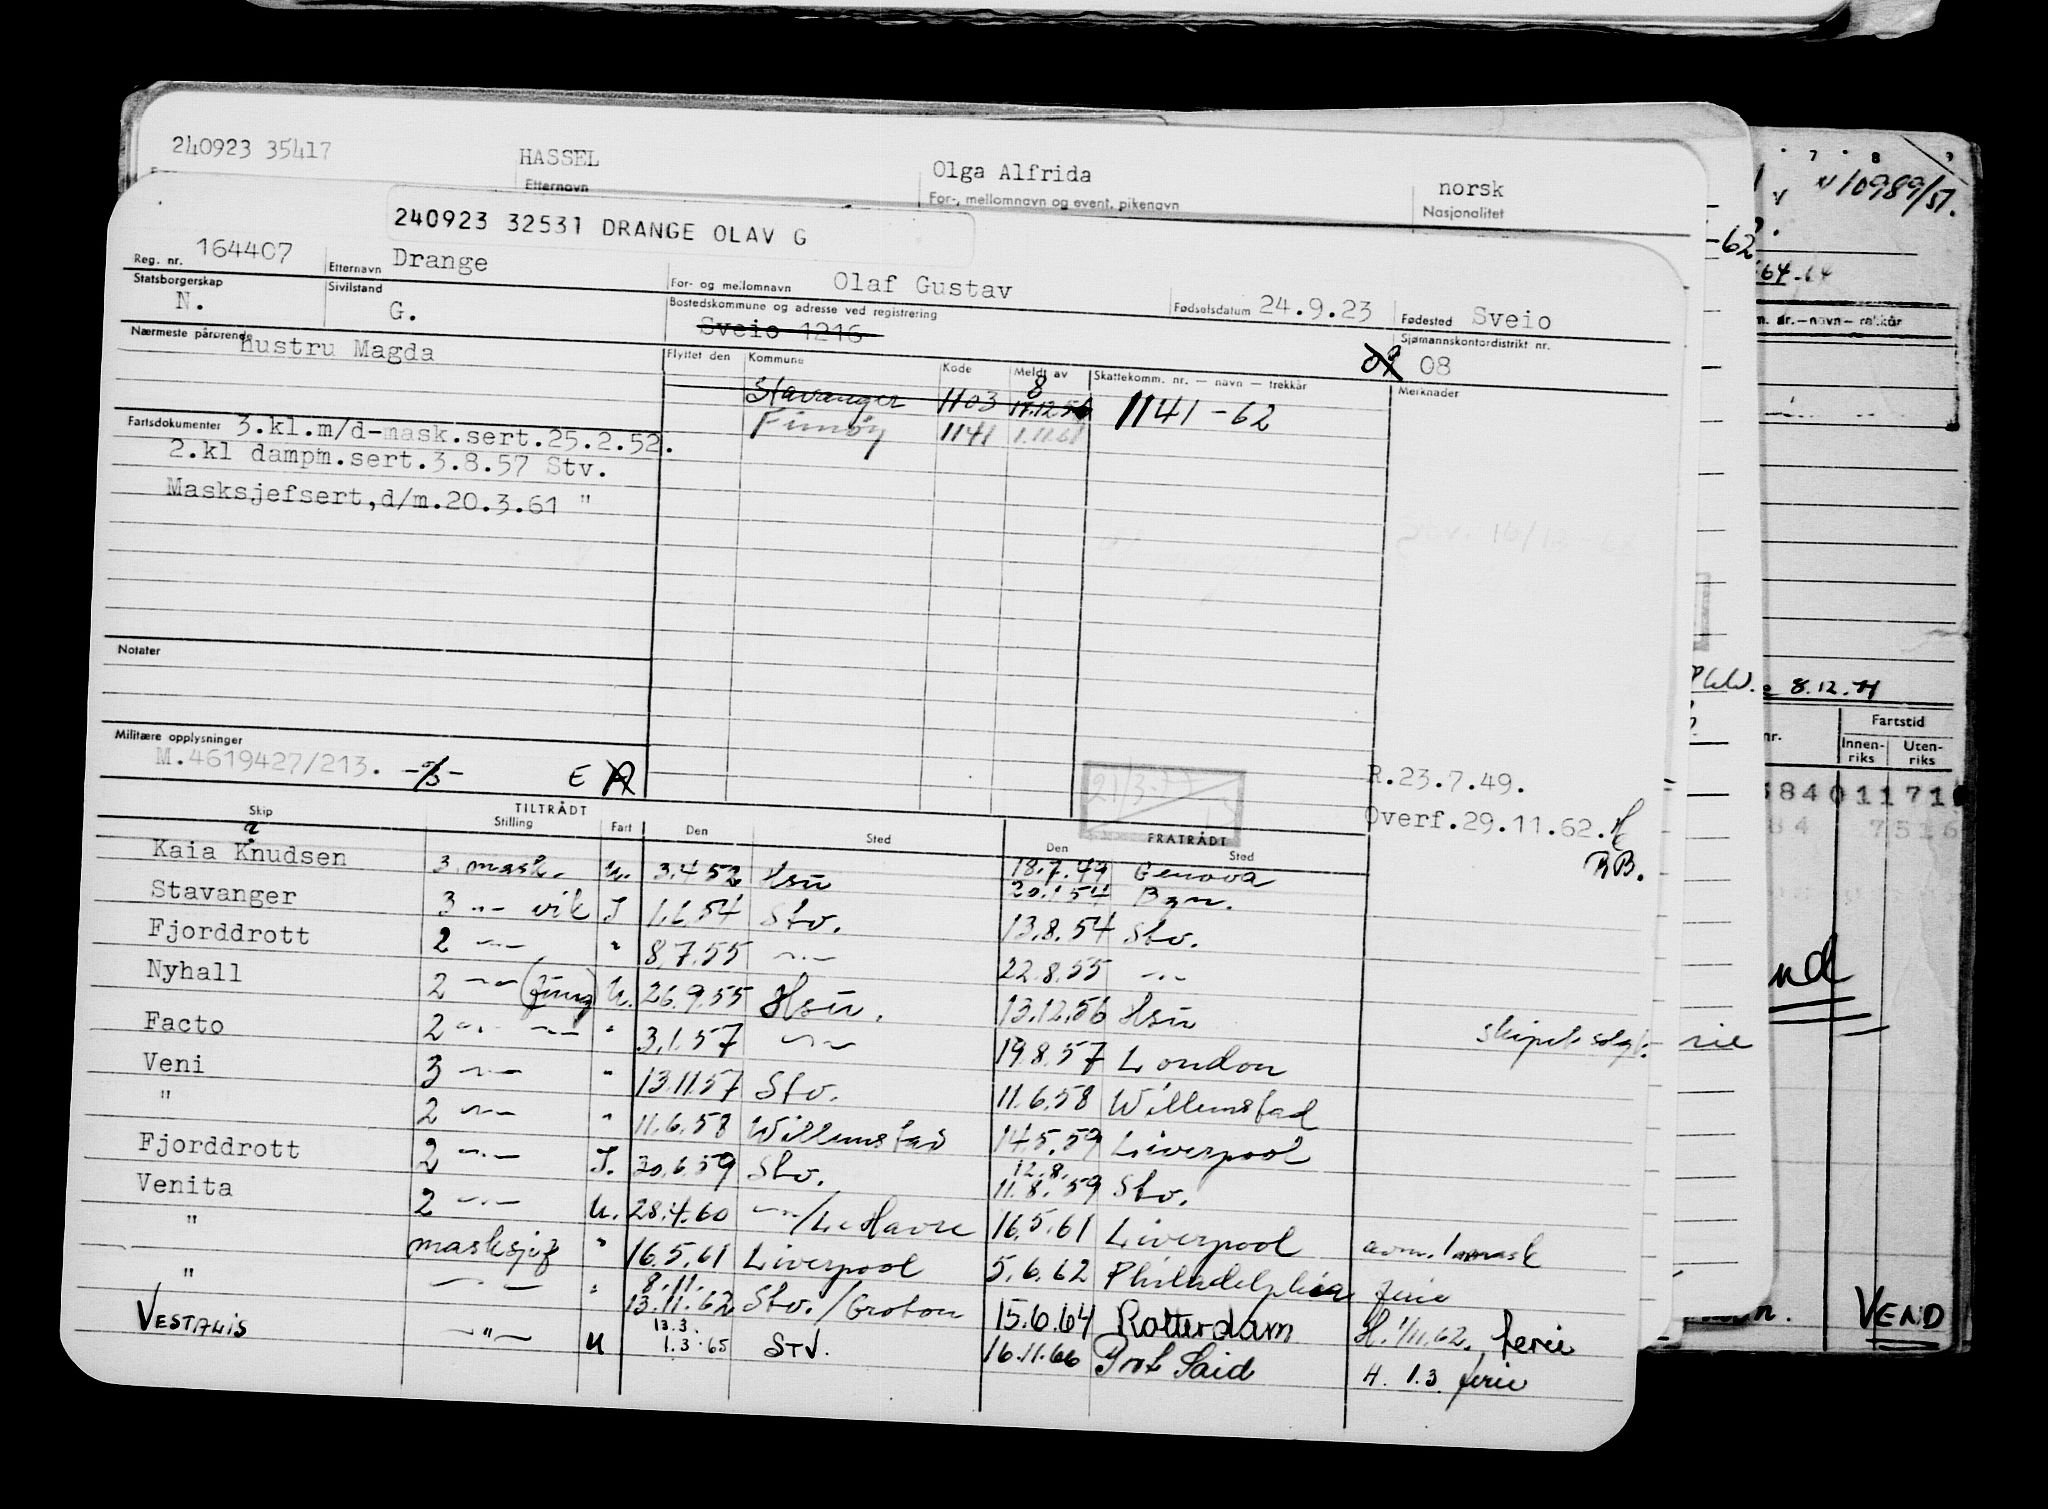 240923 35417 HASSEL Olga Alfrida norsk
Etternavn For-, mellomnavn og event. pikenavn Nasjonalitet
7 8 9
N10989/51.
-62
64-64
240923 32531 DRANGE OLAV G
Reg. nr. 164407 Etternavn Drange For- og mellomnavn Olaf Gustav Fødselsdatum 24.9.23 Fødested Sveio
Statsborgerskap N. Sivilstand G. Bostedskommune og adresse ved registrering Sveio 1216 Sjømannskontordistrikt nr. 08
Nærmeste pårørende hustru Magda
Flyttet den Kommune Kode Meldt av Skattekomm. nr. — navn — trekkår Merknader
Stavanger 1103 8 17.12.56 1141-62
Finnøy 1141 1.11.61
Fartsdokumenter 3.kl.m/d-mask.sert.25.2.52.
2.kl dampm.sert.3.8.57 Stv.
Masksjefsert,d/m.20.3.61 "
Notater
8.12.71
Militære opplysninger
M.4619427/213. E
21/3-77
R.23.7.49.
Overf.29.11.62. H
BB.
Fartstid
Innen-riks Uten-riks
TILTRÅDT FRATRÅDT
Skip Stilling Fart Den Sted Den Sted
18.7.49 Genova
Kaia Knudsen 3. mask. U. 3.4.52 Hsu 20.1.54 Bgn.
Stavanger 3 -"- vik I 1.6.54 Stv. 13.8.54 Stv.
Fjorddrott 2 -"- " 8.7.55 -"- 22.8.55 -"-
Nyhall 2 -"- (fung) U. 26.9.55 Hsu. 13.12.56 Hsu skipet solgt.
Facto 2 -"- -"- " 3.1.57 -"- 19.8.57 London
Veni 3 -"- " 13.11.57 Stv. 11.6.58 Willemstad
" 2 -"- " 11.6.58 Willemstad 14.5.59 Liverpool
Fjorddrott 2 -"- I. 30.6.59 Stv. 12.8. 11.8.59 Stv.
Venita 2 -"- U. 28.4.60 -"-/Le Havre 16.5.61 Liverpool avm. 1 mask
" masksjef " 16.5.61 Liverpool 5.6.62 Philadelphia ferie
" -"- " 8.11. 13.11.62 Stv./Groton 15.6.64 Rotterdam H. 1/11.62. ferie
VESTALIS -"- U 13.3. 1.3.65 STV. 16.11.66 Prot Said H. 1.3. ferie
VEND